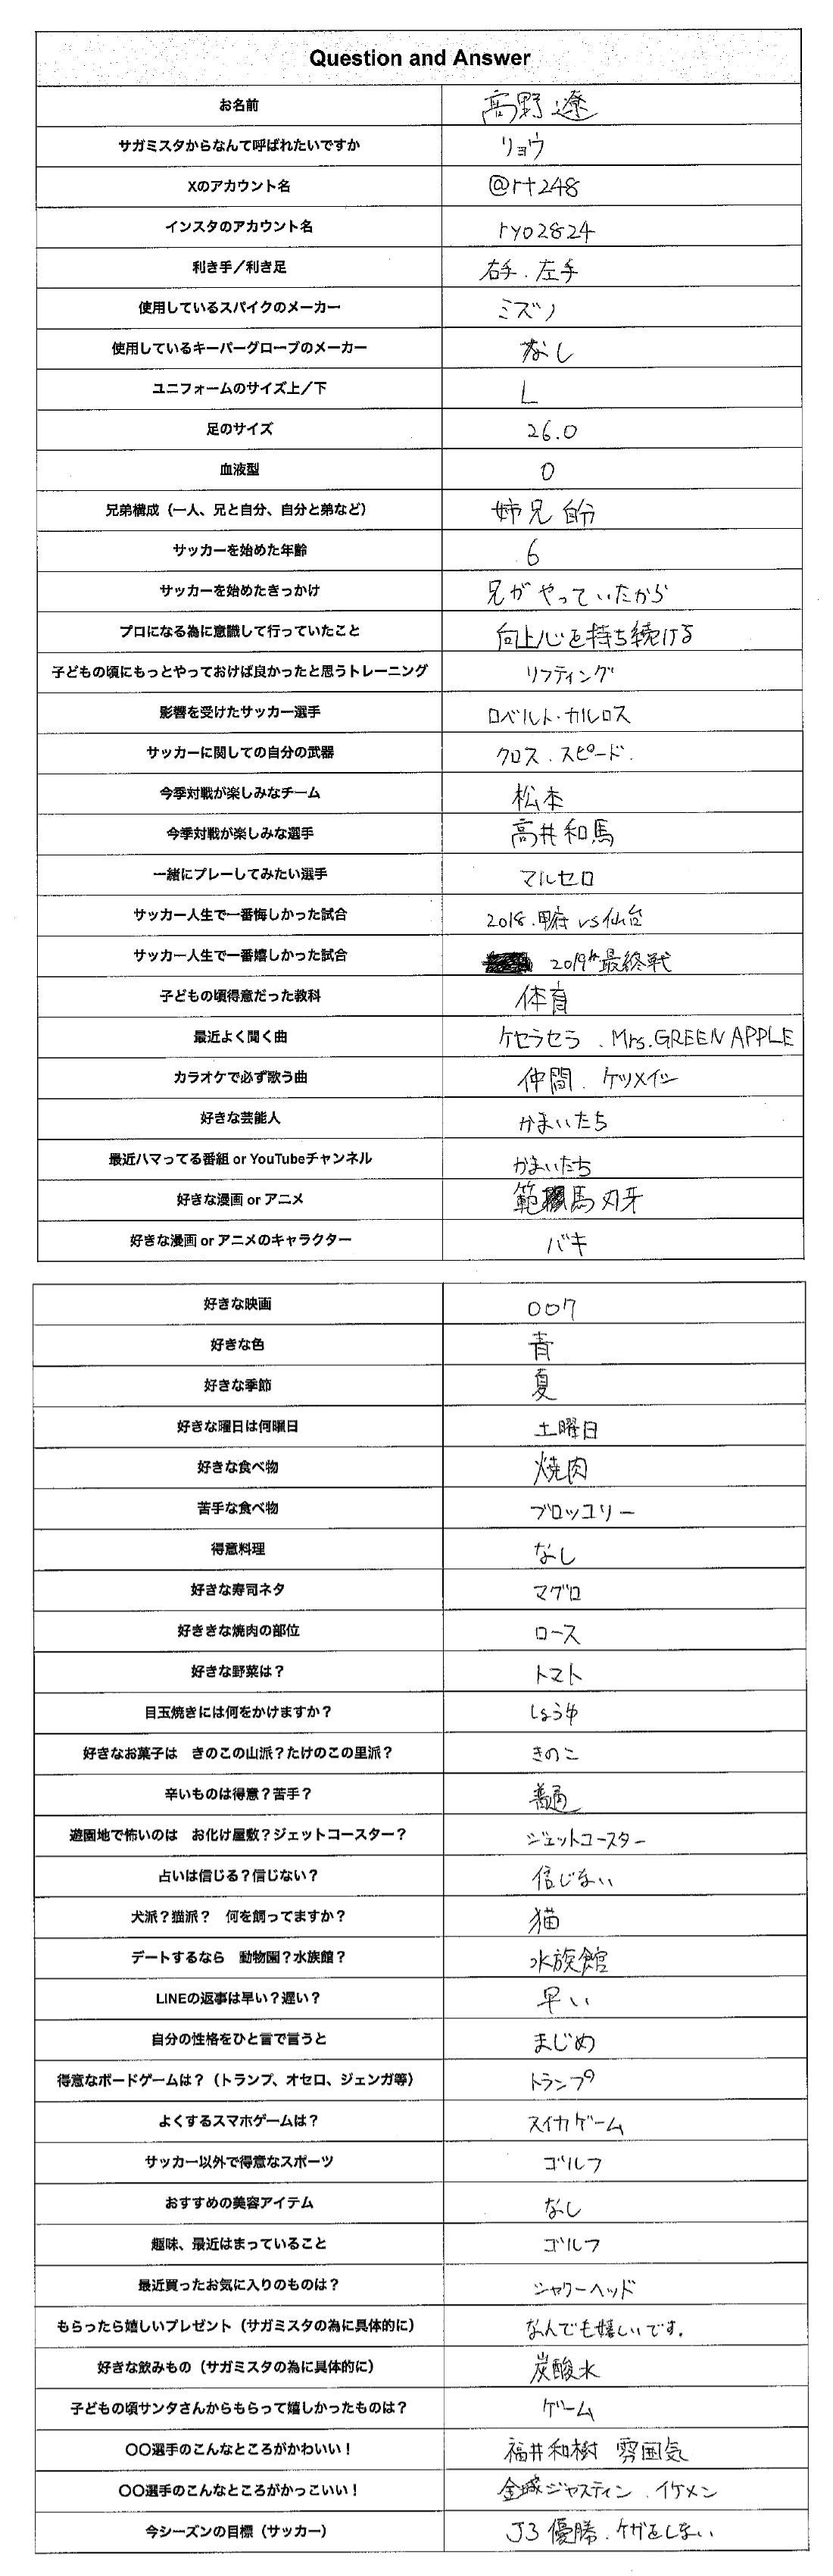 Question and Answer
お名前 高野遼
サガミスタからなんて呼ばれたいですか リョウ
Xのアカウント名 @rt248
インスタのアカウント名 ryo2824
利き手／利き足 右手．左手
使用しているスパイクのメーカー ミズノ
使用しているキーパーグローブのメーカー なし
ユニフォームのサイズ上／下 L
足のサイズ 26.0
血液型 O
兄弟構成（一人、兄と自分、自分と弟など） 姉兄自分
サッカーを始めた年齢 6
サッカーを始めたきっかけ 兄がやっていたから
プロになる為に意識して行っていたこと 向上心を持ち続ける
子どもの頃にもっとやっておけば良かったと思うトレーニング リフティング
影響を受けたサッカー選手 ロベルト・カルロス
サッカーに関しての自分の武器 クロス．スピード．
今季対戦が楽しみなチーム 松本
今季対戦が楽しみな選手 高井和馬
一緒にプレーしてみたい選手 マルセロ
サッカー人生で一番悔しかった試合 2018．甲府 vs 仙台
サッカー人生で一番嬉しかった試合 2019年最終戦
子どもの頃得意だった教科 体育
最近よく聞く曲 ケセラセラ ．Mrs.GREEN APPLE
カラオケで必ず歌う曲 仲間．ケツメイシ
好きな芸能人 かまいたち
最近ハマってる番組 or YouTubeチャンネル かまいたち
好きな漫画 or アニメ 範馬刃牙
好きな漫画 or アニメのキャラクター バキ
好きな映画 007
好きな色 青
好きな季節 夏
好きな曜日は何曜日 土曜日
好きな食べ物 焼肉
苦手な食べ物 ブロッコリー
得意料理 なし
好きな寿司ネタ マグロ
好ききな焼肉の部位 ロース
好きな野菜は？ トマト
目玉焼きには何をかけますか？ しょうゆ
好きなお菓子は　きのこの山派？たけのこの里派？ きのこ
辛いものは得意？苦手？ 普通
遊園地で怖いのは　お化け屋敷？ジェットコースター？ ジェットコースター
占いは信じる？信じない？ 信じない
犬派？猫派？　何を飼ってますか？ 猫
デートするなら　動物園？水族館？ 水族館
LINEの返事は早い？遅い？ 早い
自分の性格をひと言で言うと まじめ
得意なボードゲームは？（トランプ、オセロ、ジェンガ等） トランプ
よくするスマホゲームは？ スイカゲーム
サッカー以外で得意なスポーツ ゴルフ
おすすめの美容アイテム なし
趣味、最近はまっていること ゴルフ
最近買ったお気に入りのものは？ シャワーヘッド
もらったら嬉しいプレゼント（サガミスタの為に具体的に） なんでも嬉しいです．
好きな飲みもの（サガミスタの為に具体的に） 炭酸水
子どもの頃サンタさんからもらって嬉しかったものは？ ゲーム
〇〇選手のこんなところがかわいい！ 福井和樹 雰囲気
〇〇選手のこんなところがかっこいい！ 金城ジャスティン．イケメン
今シーズンの目標（サッカー） J3優勝．ケガをしない